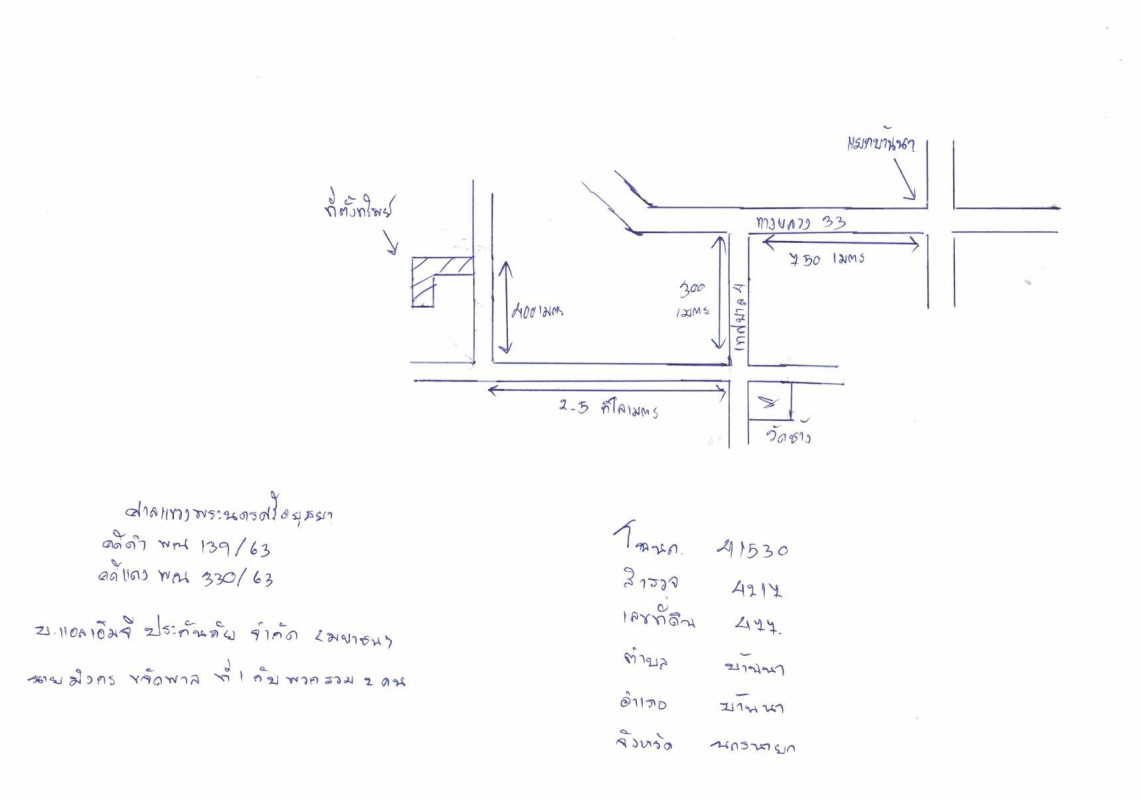 แยกบ้านนา
ที่ตั้งทรัพย์
ทางหลวง 33
750 เมตร
300
เมตร
เทศบาล 4
400 เมตร
2.5 กิโลเมตร
วัดช้าง
ศาลแขวงพระนครศรีอยุธยา
คดีดำ ผบ 139/63
คดีแดง ผบ 330/63
บ.แอลเอ็มจี ประกันภัย จำกัด (มหาชน)
นาย มังกร ขจัดพาล ที่ 1 กับพวกรวม 2 คน
โฉนด. 41530
สำรวจ 4217
เลขที่ดิน 477.
ตำบล บ้านนา
อำเภอ บ้านนา
จังหวัด นครนายก